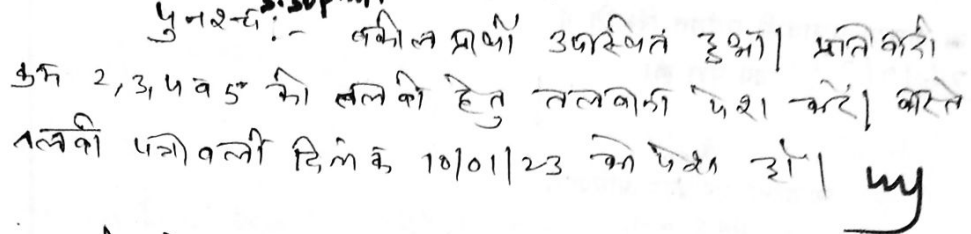 पुनश्च:- वकील प्रार्थी उपस्थित हुआ। प्रतिवादी
क्रम 2,3,4 व 5 की तलबी हेतु तलवाना पेश करें। वास्ते
तलबी पत्रावली दिनांक 10/01/23 को पेश हो।